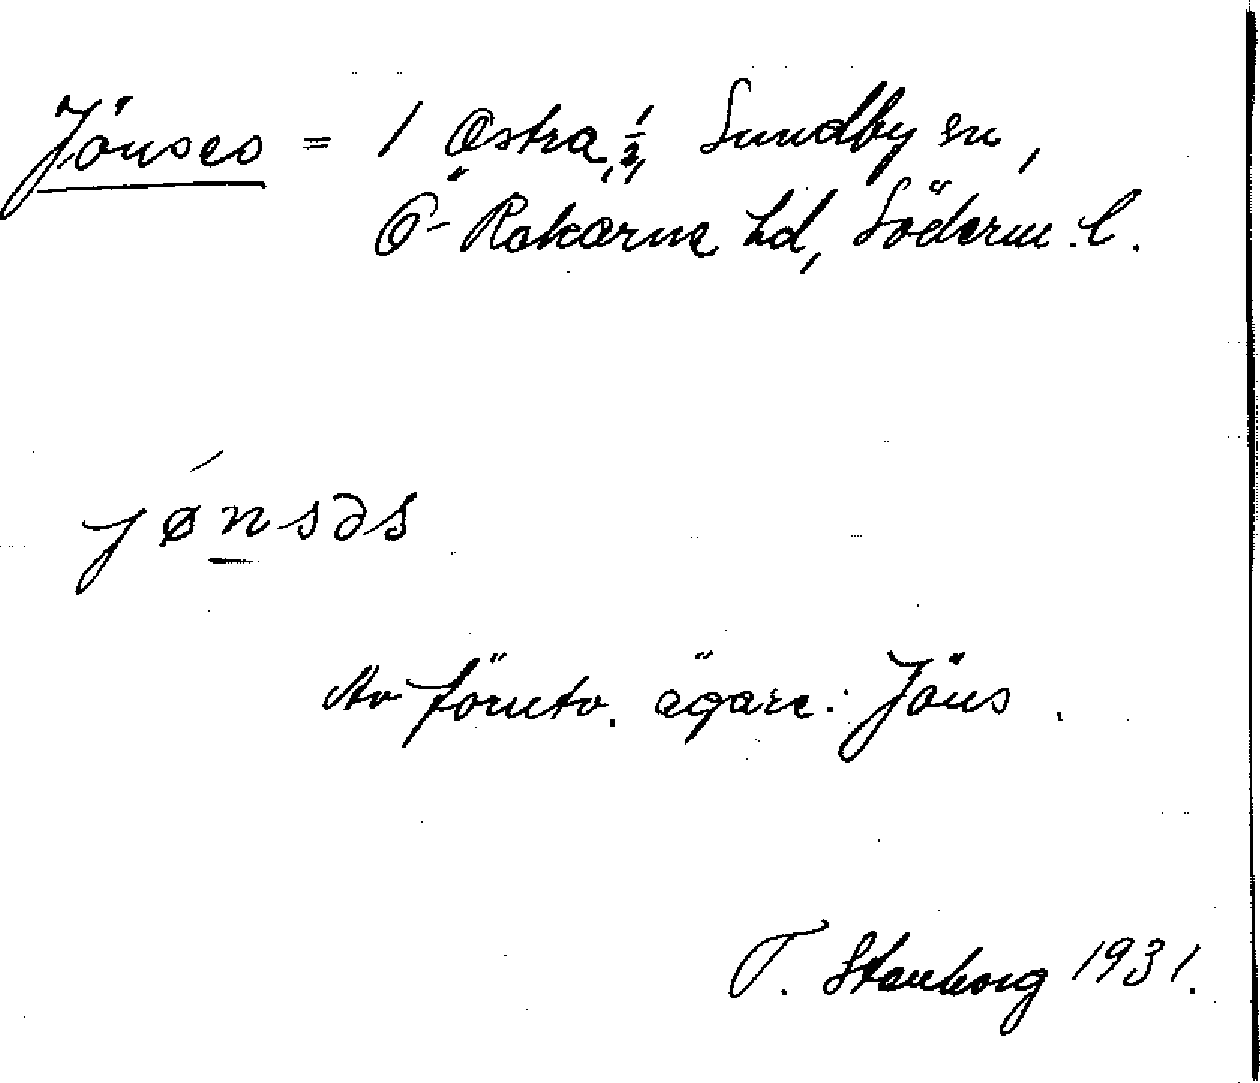 Jönses = 1 Östra, 1/2, Sundby sn,
Ö-Rekarne hd, Söderm. l.
jønsəs
Av förutv. ägare: Jöns.
T. Stenborg 1931.